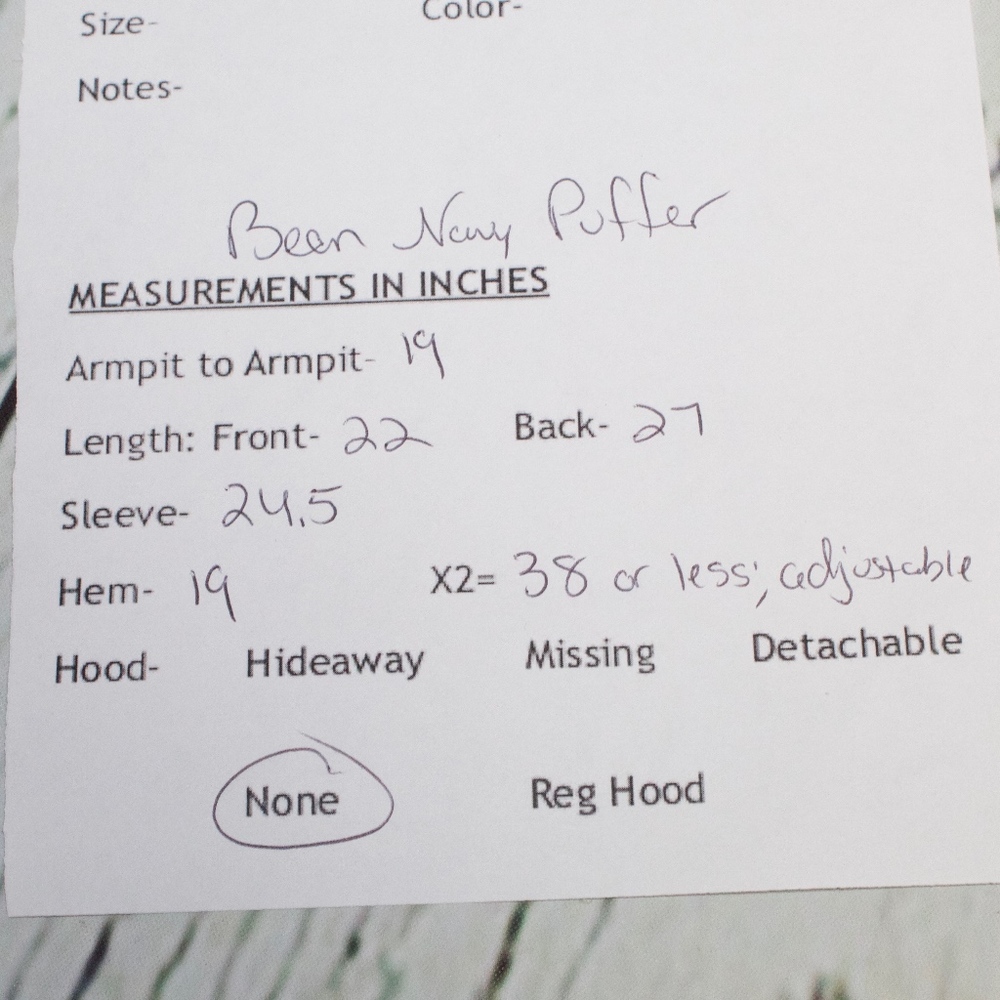 Size- Color-
Notes-
Bean Navy Puffer
MEASUREMENTS IN INCHES
Armpit to Armpit- 19
Length: Front- 22 Back- 27
Sleeve- 24.5
Hem- 19 X2= 38 or less; adjustable
Hood- Hideaway Missing Detachable
None Reg Hood